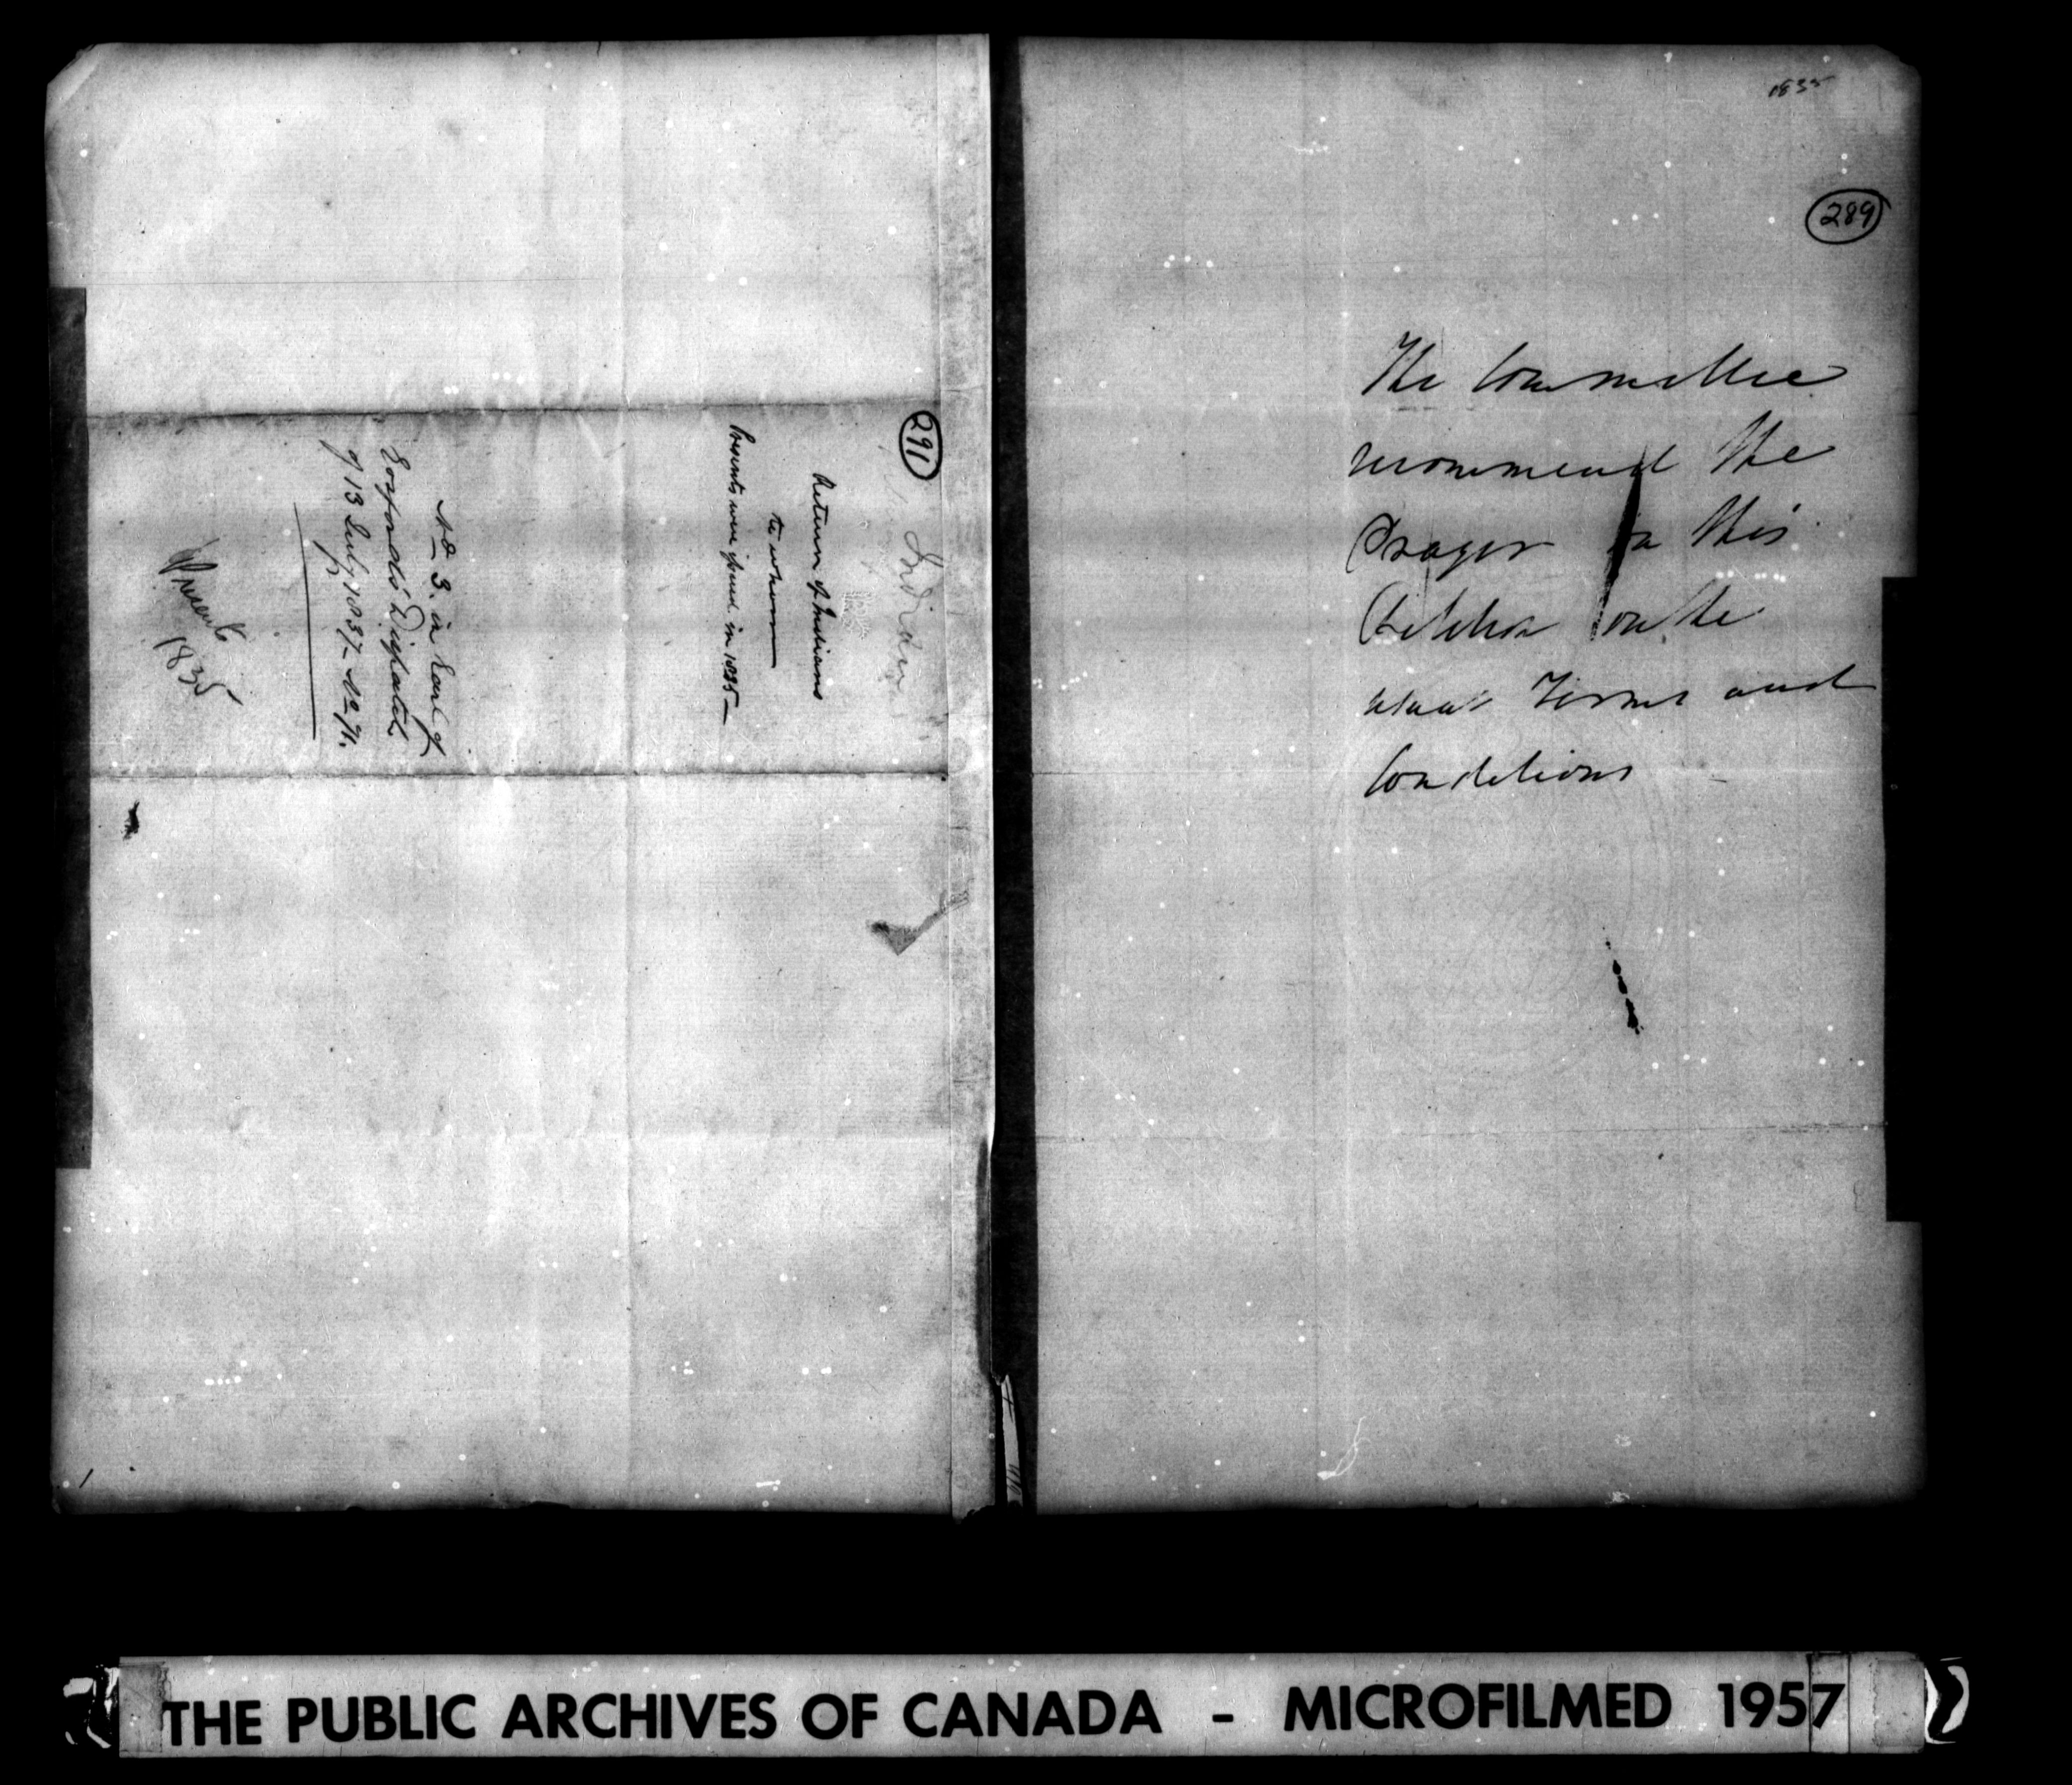 291
Indians
Return of Indians
to whom
Presents were issued in 1835 —
No 3. in Earl of
Gosford's Dispatch
of 13 July 1837 - No 91.
Presents
1835
1835
289
The Committee
recommend the
Prayer in this
Petition on the
usual Terms and
Conditions
THE PUBLIC ARCHIVES OF CANADA - MICROFILMED 1957